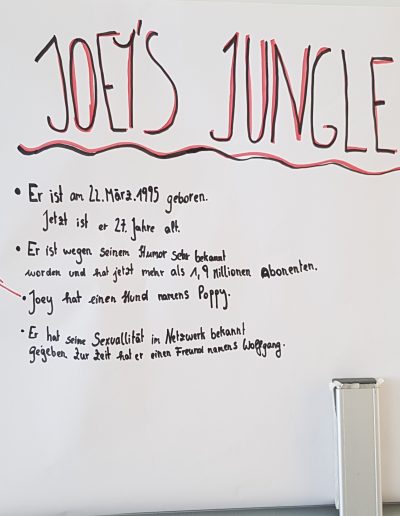 JOEY'S JUNGLE
• Er ist am 22. März. 1995 geboren.
Jetzt ist er 27. Jahre alt.
• Er ist wegen seinem Humor sehr bekannt
worden und hat jetzt mehr als 1,9 Millionen Abonenten.
• Joey hat einen Hund namens Poppy.
• Er hat seine Sexuallität im Netzwerk bekannt
gegeben. Zur Zeit hat er einen Freund namens Wolfgang.